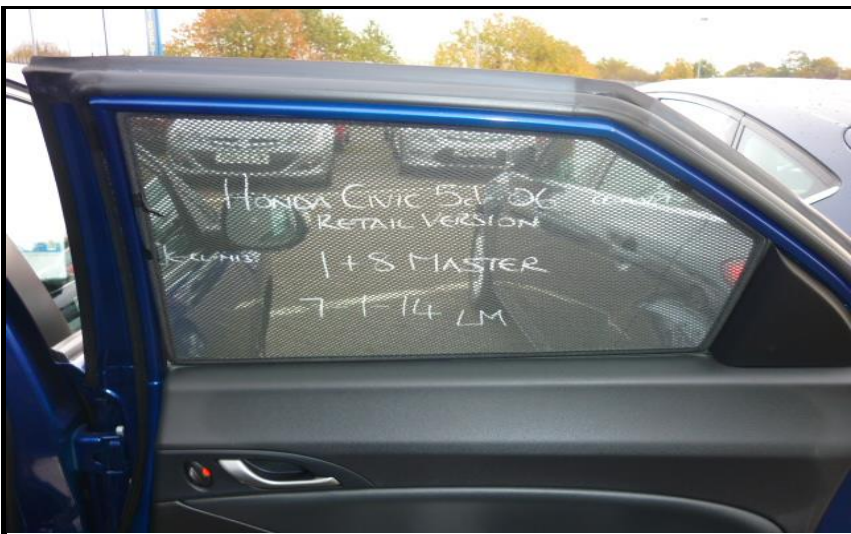 HONDA CIVIC 5d 06
RETAIL VERSION
1 + 8 MASTER
7-1-14 LM